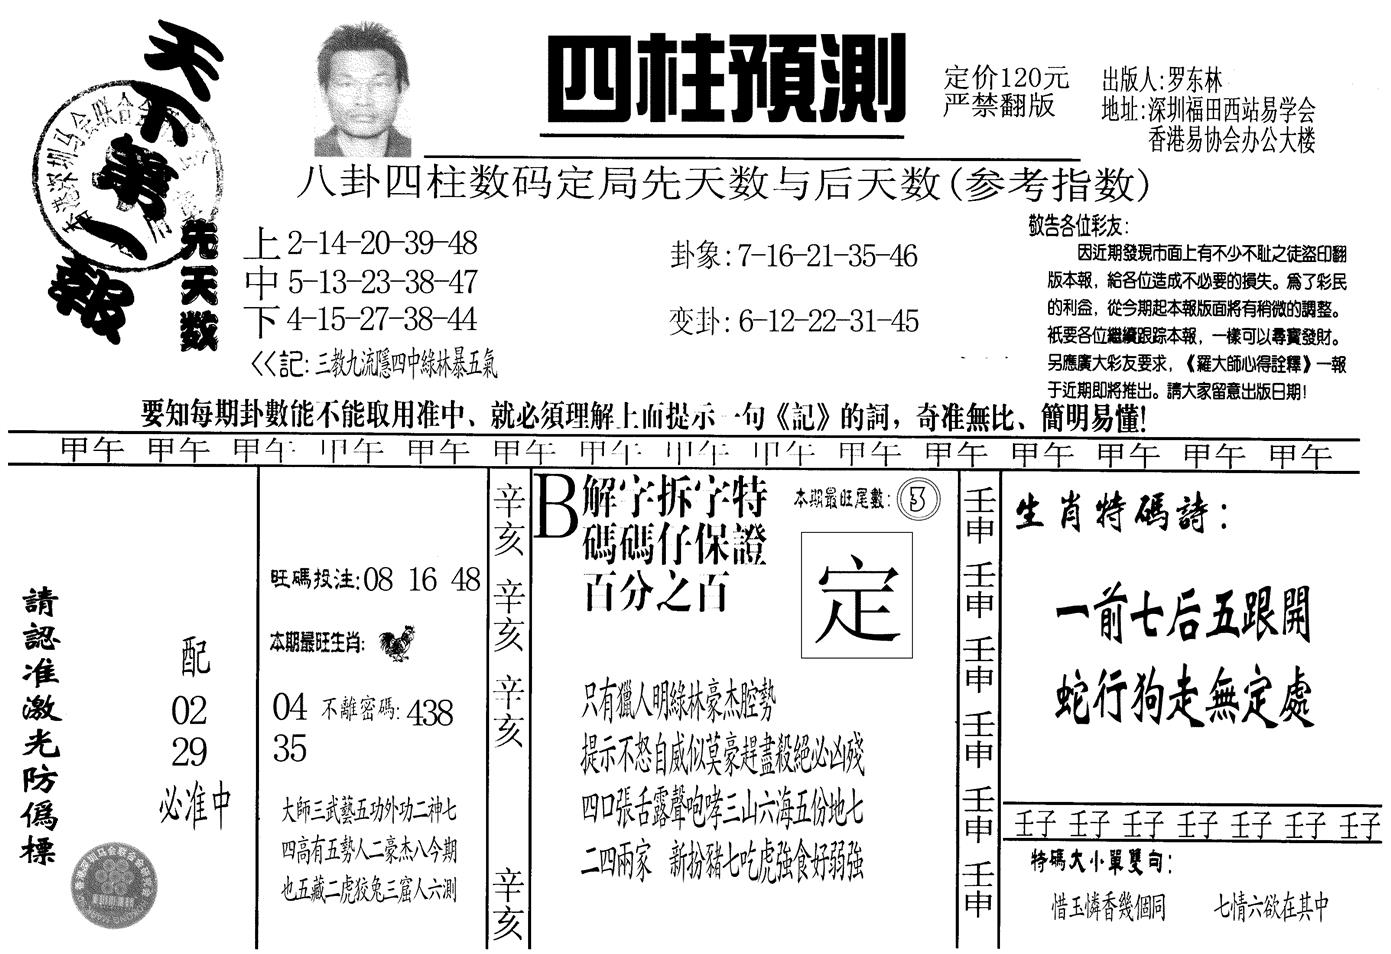 天下第一報
四柱預測
定价120元
严禁翻版
出版人:罗东林
地址:深圳福田西站易学会
香港易协会办公大楼
八卦四柱数码定局先天数与后天数(参考指数)
先天数
上 2-14-20-39-48
中 5-13-23-38-47
下 4-15-27-38-44
<<記:三教九流隱四中綠林暴五氣
卦象:7-16-21-35-46
变卦:6-12-22-31-45
敬告各位彩友:
因近期發現市面上有不少不耻之徒盗印翻
版本報，給各位造成不必要的損失。爲了彩民
的利益，從今期起本報版面將有稍微的調整。
衹要各位繼續跟踪本報，一樣可以尋寶發財。
另應廣大彩友要求，《羅大師心得詮釋》一報
于近期即將推出。請大家留意出版日期!
要知每期卦數能不能取用准中、就必須理解上面提示一句《記》的詞，奇准無比、簡明易懂!
甲午 甲午 甲午 甲午 甲午 甲午 甲午 甲午 甲午 甲午 甲午 甲午 甲午 甲午 甲午
請認准激光防僞標
配
02
29
必准中
旺碼投注:08 16 48
本期最旺生肖:
04 不離密碼:438
35
大師三武藝五功外功二神七
四高有五勢人二豪杰八今期
也五藏二虎狡兔三窟人六測
辛亥 辛亥 辛亥 辛亥
B解字拆字特
碼碼仔保證
百分之百
本期最旺尾數:3
定
只有獵人明綠林豪杰腔勢
提示不怒自威似莫豪趕盡殺絕必凶殘
四口張舌露聲咆哮三山六海五份地七
二四兩家 新扮豬七吃虎強食好弱強
壬申 壬申 壬申 壬申 壬申 壬申
生肖特碼詩:
一前七后五跟開
蛇行狗走無定處
壬子 壬子 壬子 壬子 壬子 壬子 壬子
特碼大小單雙句:
惜玉憐香幾個同 七情六欲在其中